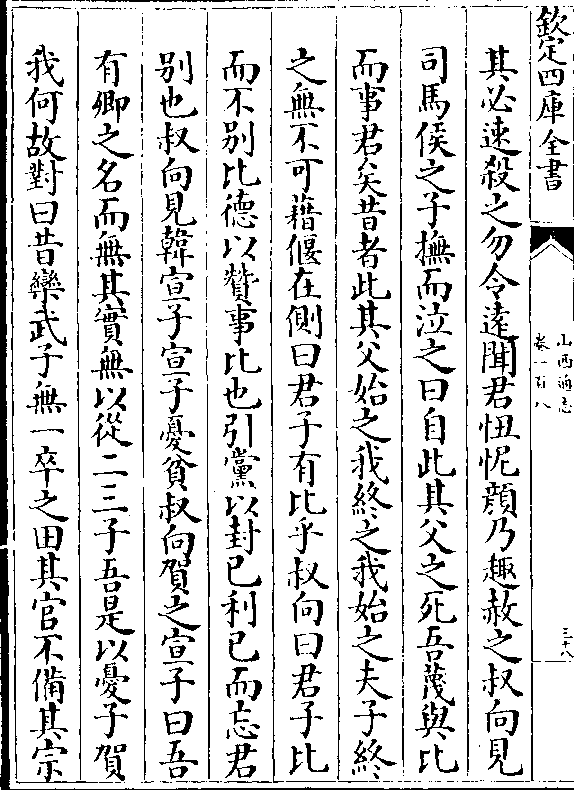 欽定四庫全書
山西通志
卷一百八
三十八
其必速殺之勿令逺聞君忸怩顔乃趣赦之叔向見
司馬侯之子撫而泣之曰自此其父之死吾蔑與比
而事君矣昔者此其父始之我終之我始之夫子終
之無不可藉偃在側曰君子有比乎叔向曰君子比
而不别比德以贊事比也引黨以封已利已而忘君
别也叔向見韓宣子宣子憂貧叔向賀之宣子曰吾
有卿之名而無其實無以從二三子吾是以憂子賀
我何故對曰昔欒武子無一卒之田其官不備其宗